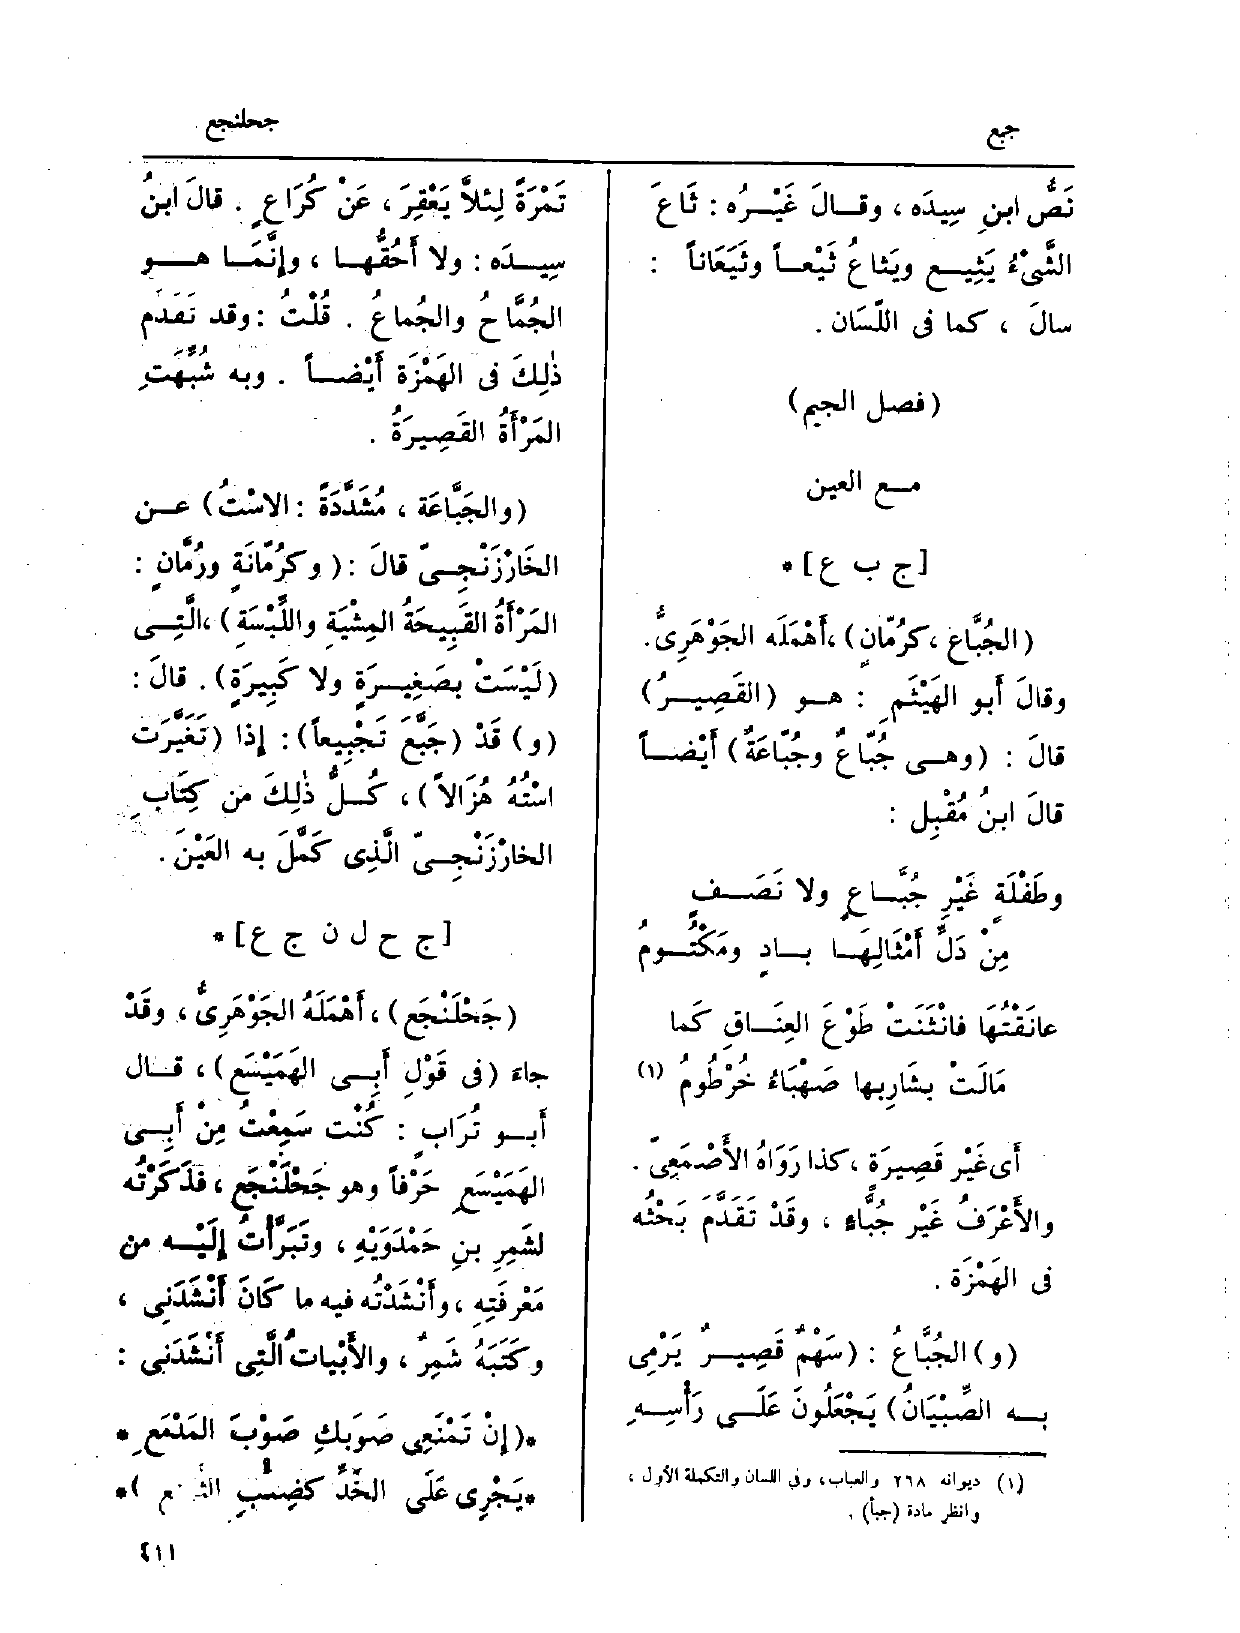 جبع
جحلنجع
نَصُّ ابنِ سِيدَه ، وقــالَ غَيْــرُه : ثَاعَ
الشَّىْءُ يَثِيــع ويَثاعُ ثَيْعــاً وثَيَعَاناً :
سالَ ، كما فى اللِّسَان .
(فصل الجيم)
مــع العين
[ج ب ع] *
(الجُبَّاع ،كرُمّانٍ) ،أَهْمَلَه الجَوْهَرِىُّ.
وقالَ أَبو الهَيْثَمِ : هــو (القَصِيــرُ)
قالَ : (وهــى جُبّاعٌ وجُبّاعَةٌ) أَيْضــاً
قالَ ابنُ مُقْبِل :
وطَفْلَةٍ غَيْرِ جُبَّــاعٍ ولا نَصَــفٍ
مِنْ دَلِّ أَمْثَالِهَــا بــادٍ ومَكْتُــومُ
عانَقْتُهَا فانْثَنَتْ طَوْعَ العِنَــاقِ كَما
مَالَتْ بشارِبِها صَهْبَاءُ خُرْطُومُ (١)
أَى غَيْرِ قَصِيرَةٍ ،كذا رَوَاهُ الأَصْمَعِىّ .
والأَعْرَفُ غَيْر جُبَّاءٍ ، وقَدْ تَقَدَّم بَحْثُه
فى الهَمْزَة .
(و) الجُبَّاعُ : (سَهْمٌ قَصِيــرٌ يَرْمِى
بــه الصِّبْيَانُ) يَجْعَلُونَ عَلَــى رَأْسِــهِ
(١) ديوانه ٢٦٨ والعباب، وفى اللسان والتكملة الأول ،
وانظر مادة (جبأ) .
تَمْرَةً لِئلاَّ يَعْقِرَ ، عَنْ كُرَاعٍ . قالَ ابنُ
سِيــدَه : ولا أَحُقُّهــا ، وإنَّمَــا هــو
الجُمَّاحُ والجُماعُ . قُلْتُ :وقد تَقَدَّم
ذٰلِكَ فى الهَمْزَة أَيْضــاً . وبه شُبِّهَتِ
المَرْأَةُ القَصِيرَةُ .
(والجَبَّاعَة ، مُشَدَّدَةً : الاسْتُ) عــن
الخَارْزَنْجِــىّ قالَ :( وكرُمّانَةٍ ورُمّانٍ :
المَرْأَةُ القَبِيحَةُ المِشْيَةِ واللِّبْسَةِ) ،الَّتِــى
(لَيْسَتْ بصَغِيــرَةٍ ولا كَبِيرَةٍ) . قالَ :
(و) قَدْ (جَبَّعَ تَجْبِيعاً): إذا (تَغَيَّرَت
اسْتُهُ هُزَالاً) ، كُــلُّ ذٰلِكَ من كِتَابِ
الخارْزَنْجِــىّ الَّذِى كَمَّلَ به العَيْنَ .
[ج ح ل ن ج ع] *
(جَحْلَنْجَع) ، أَهْمَلَهُ الجَوْهَرِىُّ ، وقَدْ
جاءَ (فى قَوْلِ أَبِــى الهَمَيْسَعِ) ، قــال
أَبــو تُرَابٍ : كُنْتُ سَمِعْتُ مِنْ أَبِــى
الهَمَيْسَعِ حَرْفاً وهو جَحْلَنْجَع ، فذَكَرْتُه
لشَمِرِ بنِ حَمْدَوَيْهِ ، وتَبَرَّأْتُ إِلَيْــه من
مَعْرِفَتِهِ ،وأَنْشَدْتُه فيه ما كانَ أَنْشَدَنِى ،
وكَتَبَهُ شَمِرٌ ، والأَبْيات الَّتِى أَنْشَدَنى :
*(إِنْ تَمْنَعِى صَوْبَكِ صَوْبَ المَدْمَعِ *
*يَجْرِى عَلَى الخَدِّ كضِئْبِ )*
٤١١